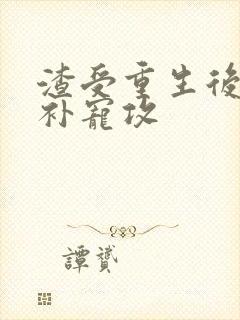 渣受重生後
补寵攻
譚贇